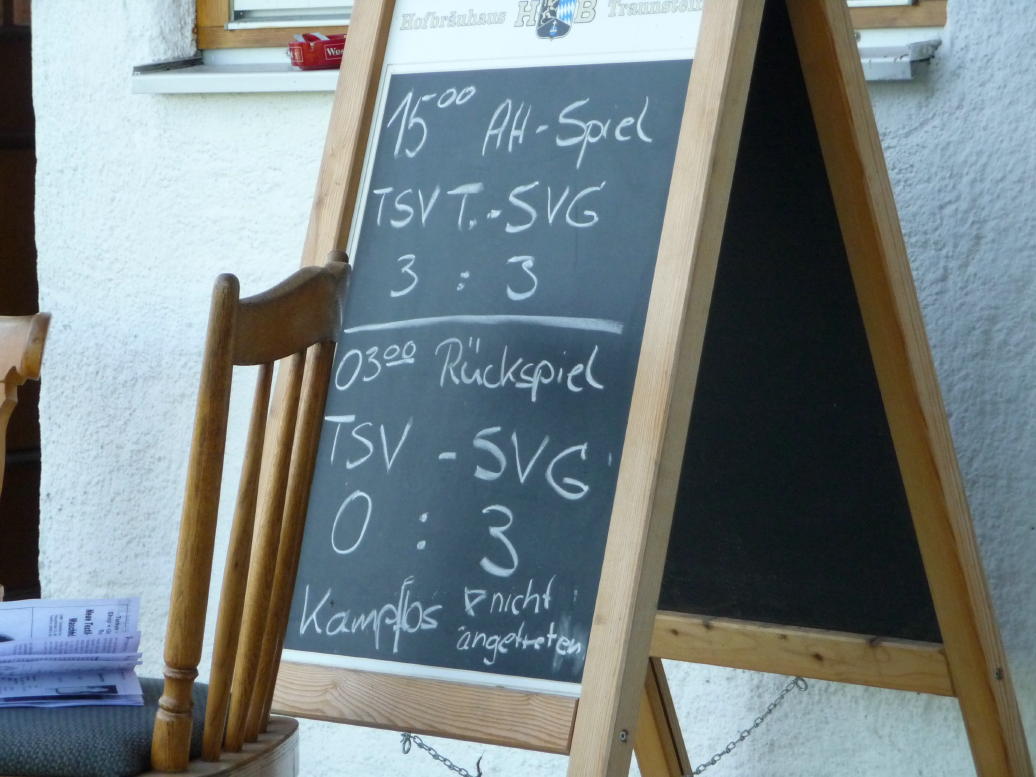 Hofbräuhaus HB Traunstein
15⁰⁰ AH-Spiel
TSV T. - SVG
3 : 3
03⁰⁰ Rückspiel
TSV - SVG
0 : 3
Kampflos nicht
angetreten